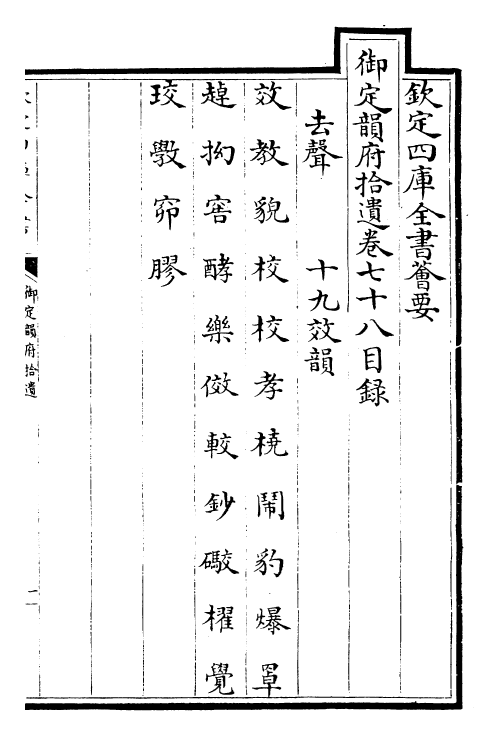 欽定四庫全書薈要
御定韻府拾遺卷七十八目録
去聲　十九效韻
效教貌校校孝橈鬧豹爆罩
趠抝窖酵樂傚較鈔礮櫂覺
珓斆窌膠
御定韻府拾遺
一